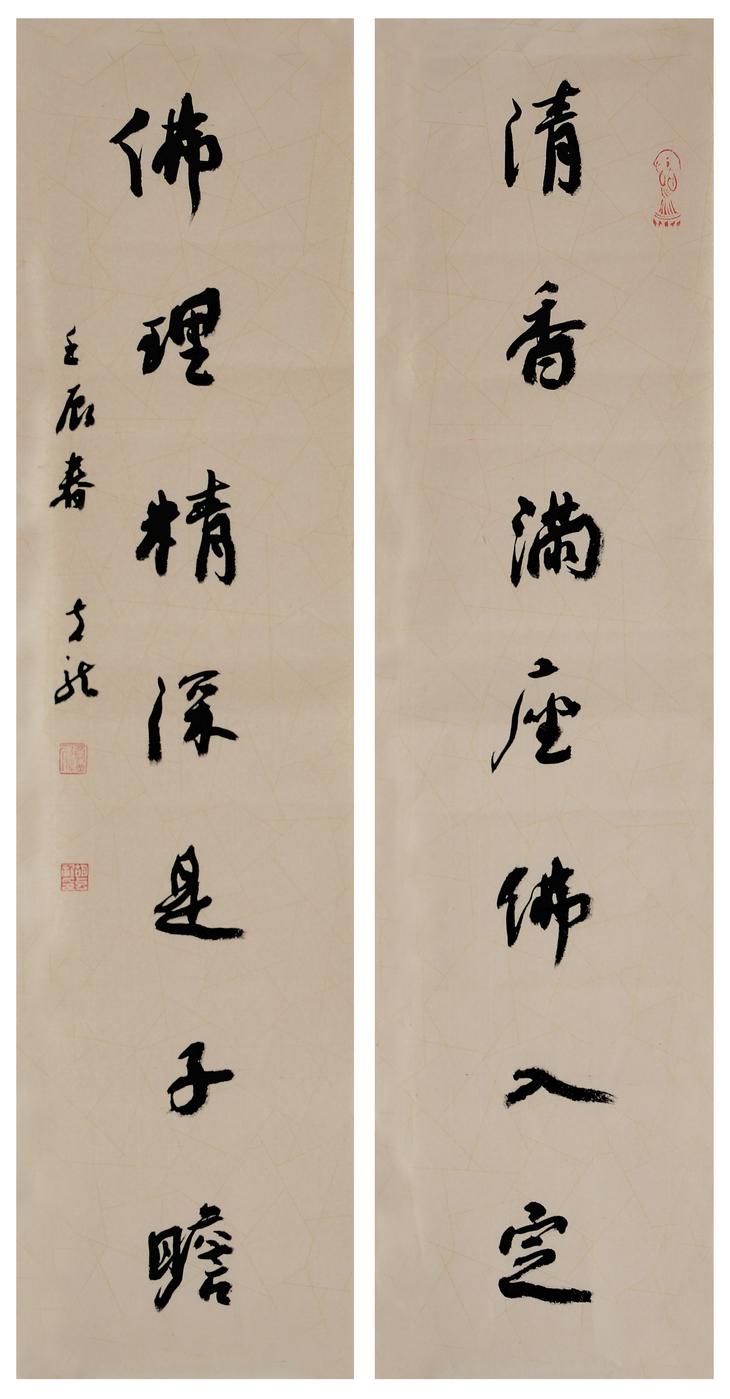 清香滿座佛入定
佛理精深是子瞻
壬辰春